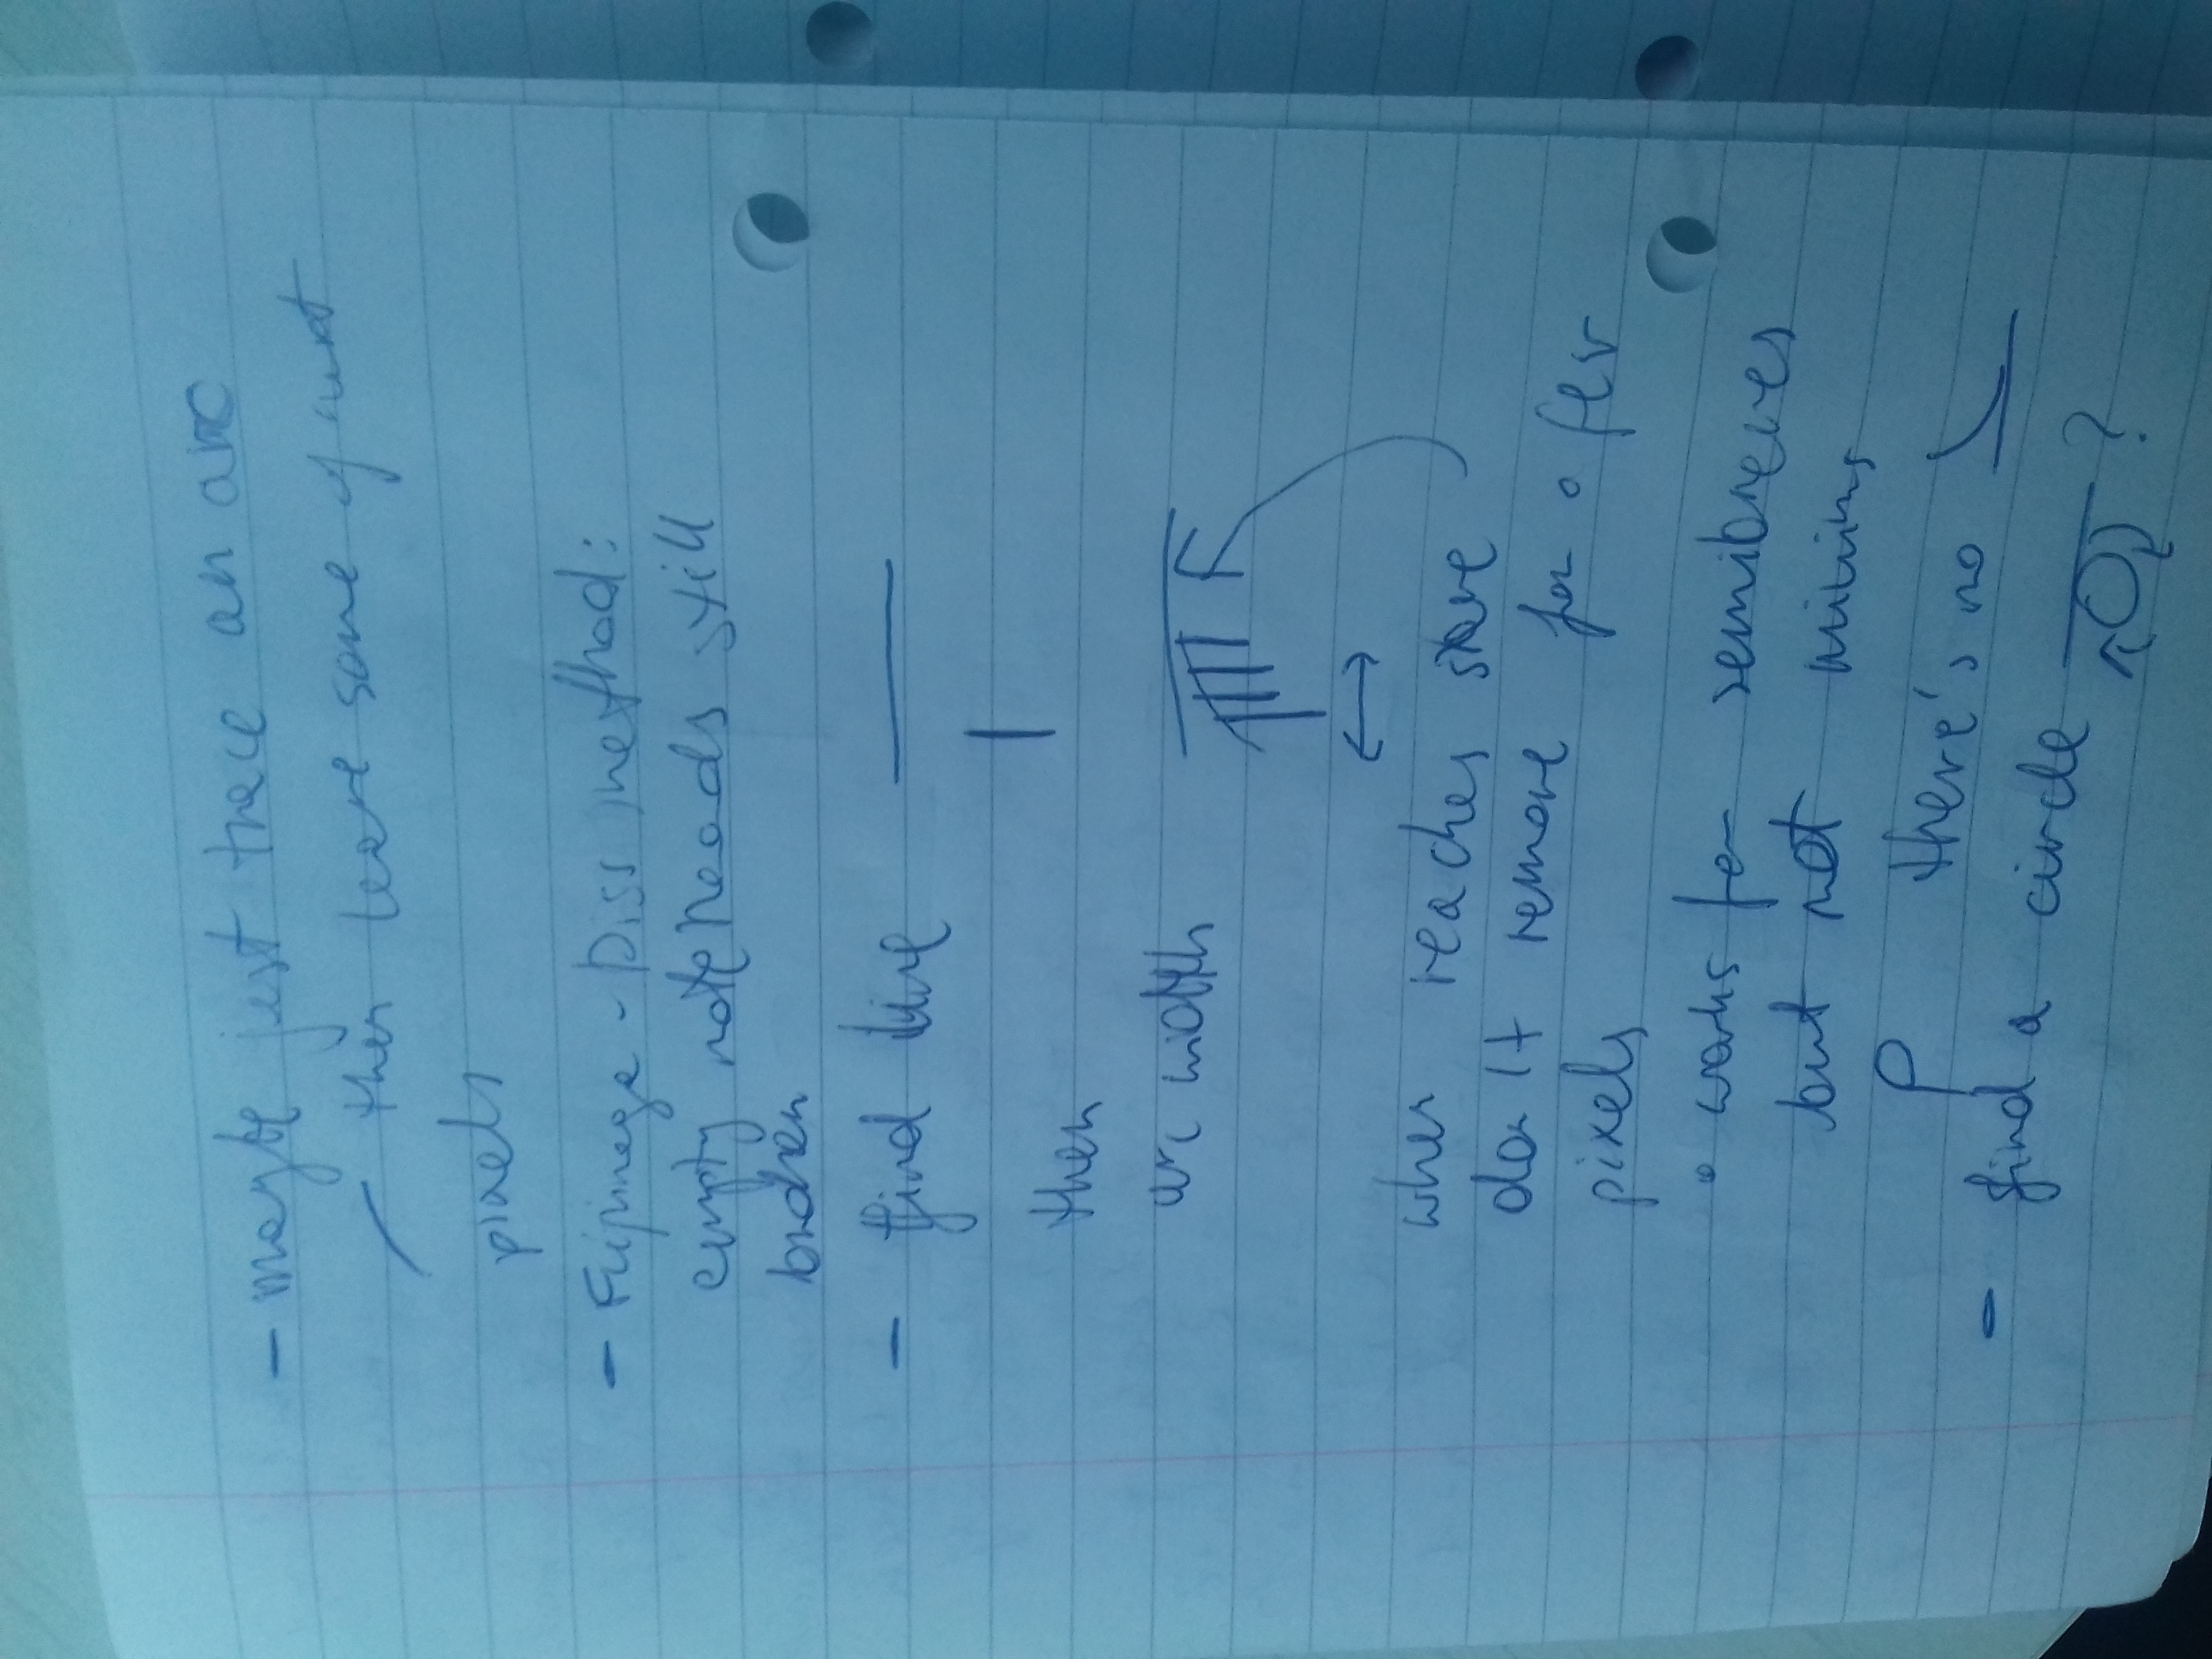 - maybe just trace an arc
then leave some of
pixels
- Fujinaga - Diss method:
empty noteheads still
broken
- find line
then
arc width
when reaches stave
don't remove for a few
pixels
• works for semibreves
but not minims
there's no
- find a circle ?